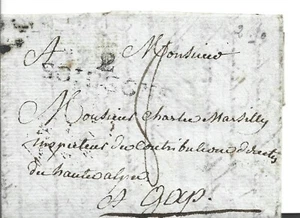 A Monsieur
2
Monsieur Charles Marsilly
inspecteur des Contributions directes
des hautes alpes
A Gap.